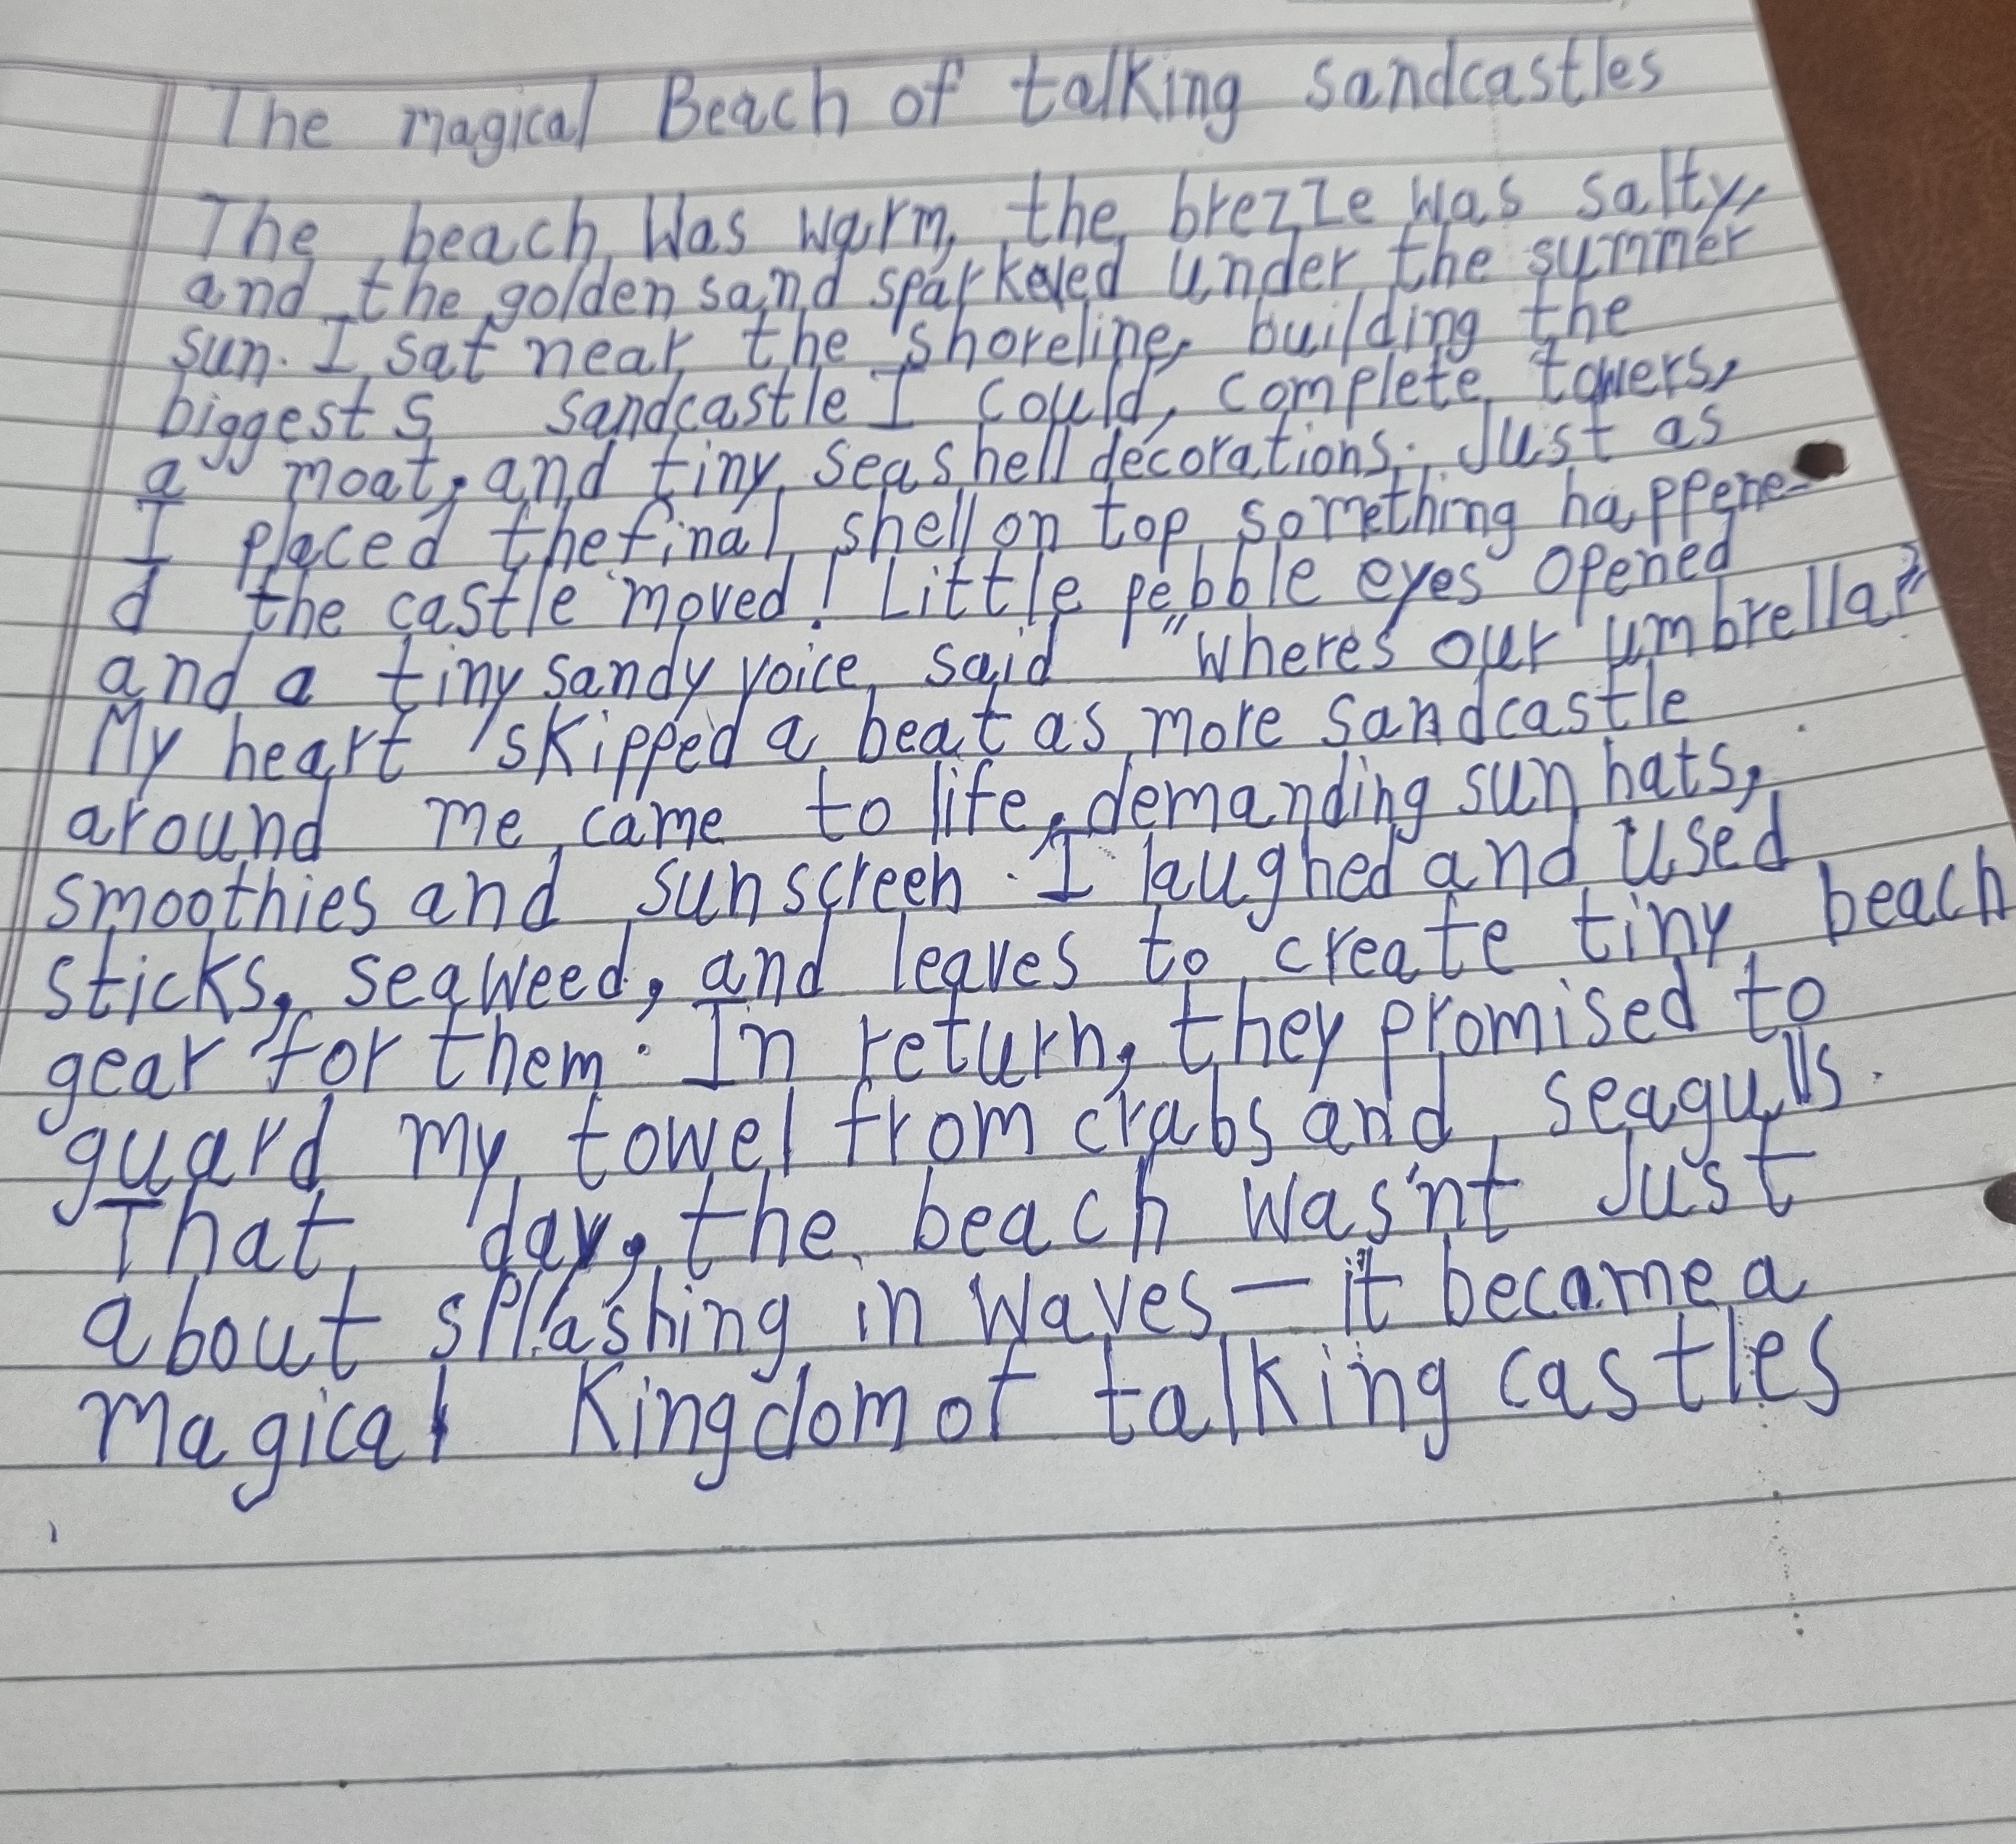 The magical Beach of talking sandcastles
The beach Was warm, the brezze was salty,
and the golden sand sparkeled under the summer
sun. I sat near the shoreline, building the
biggest s sandcastle I could, complete towers,
a moat, and tiny seashell decorations. Just as
I placed the final shell on top something happene-
d the castle moved! Little pebble eyes opened
and a tiny sandy voice said "wheres our umbrella?"
My heart skipped a beat as more sandcastle
around me came to life, demanding sun hats,
smoothies and sunscreen. I laughed and used
sticks, seaweed, and leaves to create tiny beach
gear for them. In return, they promised to
guard my towel from crabs and seagulls.
That day, the beach was'nt Just
about splashing in waves — it became a
magical Kingdom of talking castles